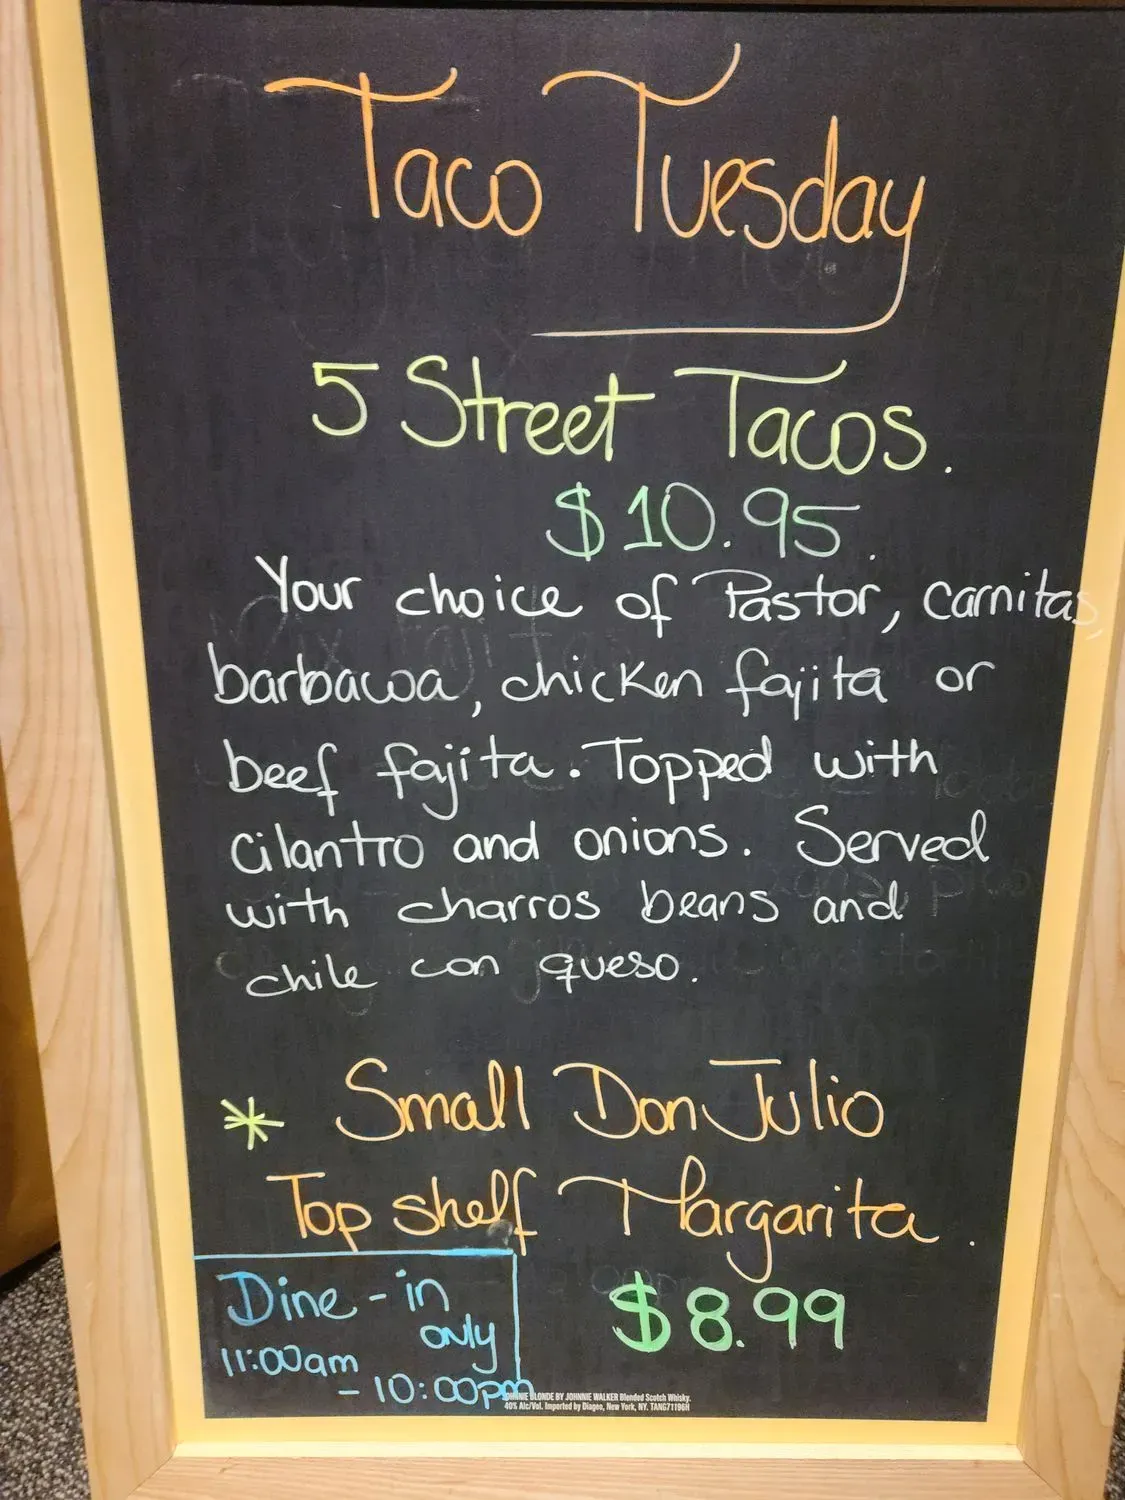 Taco Tuesday
5 Street Tacos.
$10.95.
Your choice of Pastor, carnitas,
barbacoa, chicken fajita or
beef fajita. Topped with
cilantro and onions. Served
with charros beans and
chile con queso.
* Small Don Julio
Top shelf Margarita.
$8.99
Dine-in
only
11:00am
- 10:00pm
JOHNNIE BLONDE BY JOHNNIE WALKER Blended Scotch Whisky.
40% Alc/Vol. Imported by Diageo, New York, NY. TANG71196H